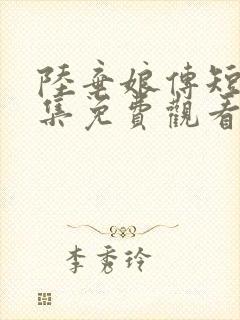 陸棄娘傳短
集免費觀看
李秀玲